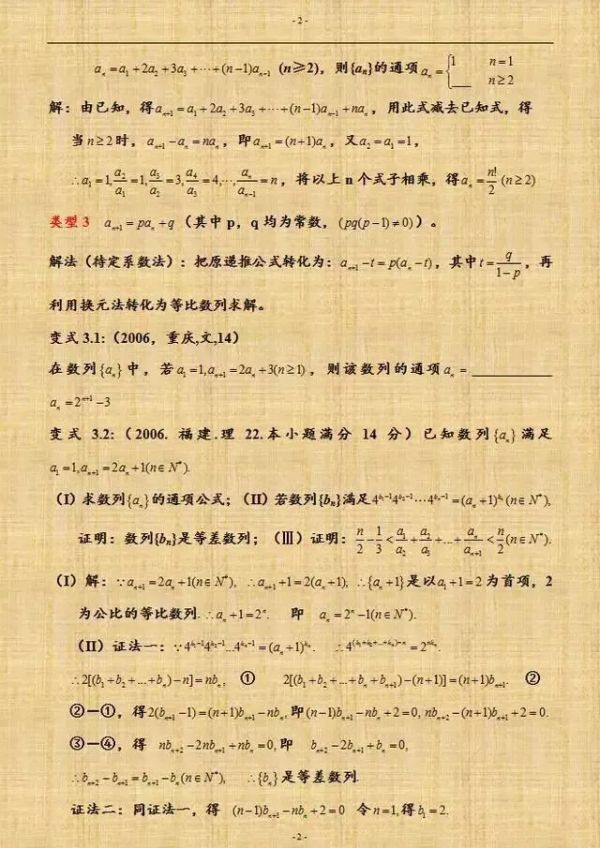 - 2 -
a_n=a_1+2a_2+3a_3+⋯+(n−1)a_{n−1} (n≥2)，则{a_n}的通项 a_n={1 n=1 ___ n≥2
解：由已知，得a_{n+1}=a_1+2a_2+3a_3+⋯+(n−1)a_{n−1}+na_n，用此式减去已知式，得
当n≥2时，a_{n+1}−a_n=na_n，即a_{n+1}=(n+1)a_n，又a_2=a_1=1，
∴a_1=1,a_2/a_1=1,a_3/a_2=3,a_4/a_3=4,⋯,a_n/a_{n−1}=n，将以上n个式子相乘，得a_n=n!/2(n≥2)
类型3 a_{n+1}=pa_n+q（其中p，q均为常数，(pq(p−1)≠0)）。
解法（待定系数法）：把原递推公式转化为：a_{n+1}−t=p(a_n−t)，其中t=q/(1−p)，再
利用换元法转化为等比数列求解。
变式3.1:（2006，重庆,文,14）
在数列{a_n}中，若a_1=1,a_{n+1}=2a_n+3(n≥1)，则该数列的通项a_n=________
a_n=2^{n+1}−3
变式3.2:（2006. 福建.理22.本小题满分14分）已知数列{a_n}满足
a_1=1,a_{n+1}=2a_n+1(n∈N^*).
（I）求数列{a_n}的通项公式；（II）若数列{b_n}满足4^{b_1−1}4^{b_2−1}⋯4^{b_n−1}=(a_n+1)^{b_n}(n∈N^*),
证明：数列{b_n}是等差数列；（Ⅲ）证明：n/2−1/3<a_1/a_2+a_2/a_3+...+a_n/a_{n+1}<n/2(n∈N^*).
（I）解：∵a_{n+1}=2a_n+1(n∈N^*), ∴a_{n+1}+1=2(a_n+1), ∴{a_n+1}是以a_1+1=2为首项，2
为公比的等比数列.∴a_n+1=2^n. 即 a_n=2^n−1(n∈N^*).
（II）证法一：∵4^{b_1−1}4^{b_2−1}...4^{b_n−1}=(a_n+1)^{b_n}. ∴4^{(b_1+b_2+...+b_n)−n}=2^{nb_n}.
∴2[(b_1+b_2+...+b_n)−n]=nb_n, ① 2[(b_1+b_2+...+b_n+b_{n+1})−(n+1)]=(n+1)b_{n+1}. ②
②—①，得2(b_{n+1}−1)=(n+1)b_{n+1}−nb_n,即(n−1)b_{n+1}−nb_n+2=0, nb_{n+2}−(n+1)b_{n+1}+2=0.
③—④，得 nb_{n+2}−2nb_{n+1}+nb_n=0,即 b_{n+2}−2b_{n+1}+b_n=0,
∴b_{n+2}−b_{n+1}=b_{n+1}−b_n(n∈N^*), ∴{b_n}是等差数列.
证法二：同证法一，得 (n−1)b_{n+1}−nb_n+2=0 令n=1,得b_1=2.
- 2 -